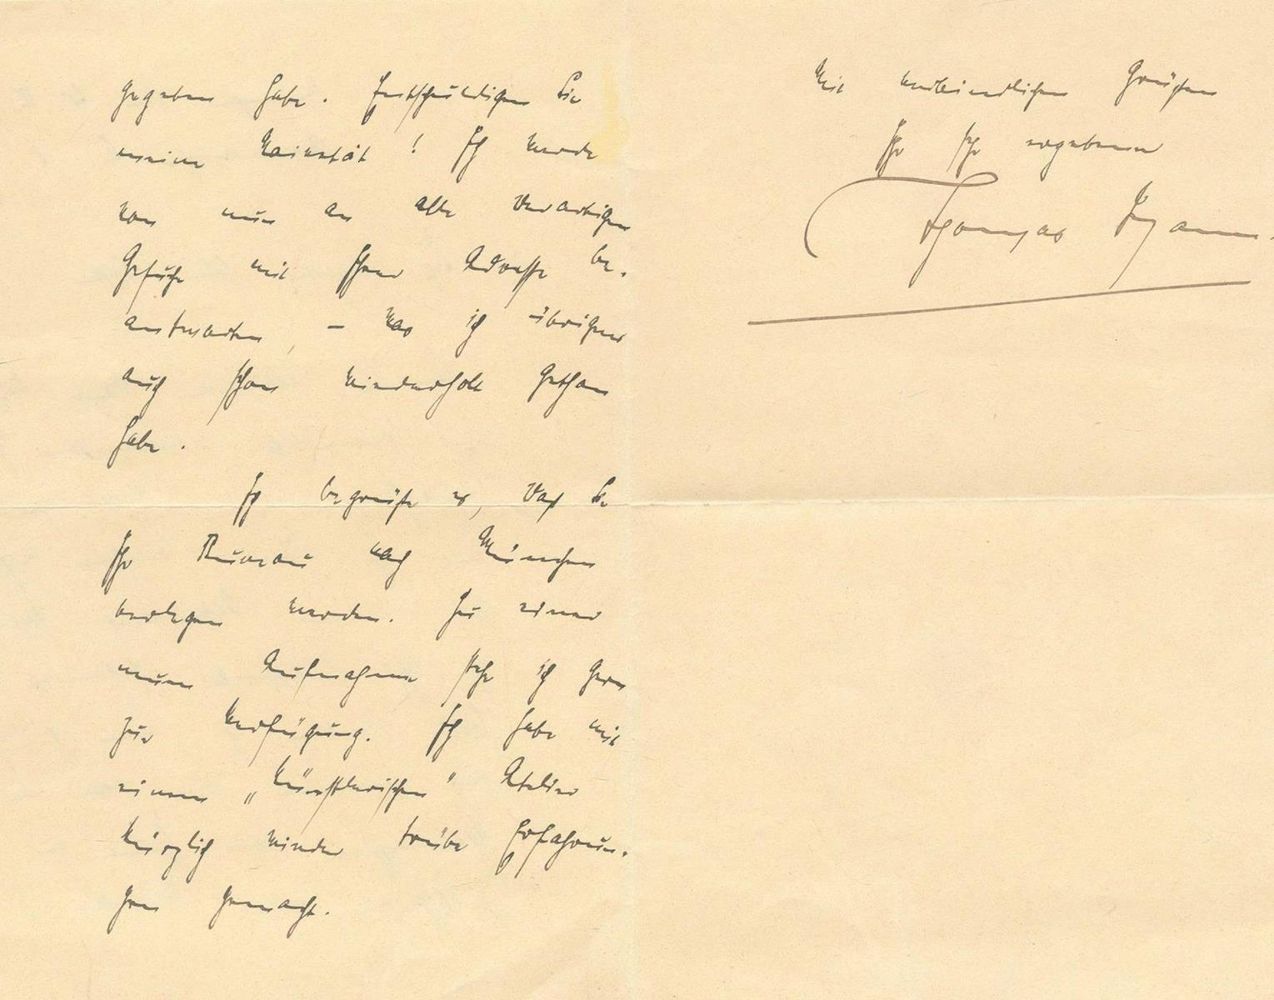 gegeben habe. Entschuldigen Sie
meine Naivetät! Ich werde
von nun an alle derartigen
Gesuche mit Ihrer Adresse be-
antworten, – was ich übrigens
auch schon wiederholt gethan
habe.
Ich begrüße es, daß Sie
Ihr Bureau nach München
verlegen werden. Zu einer
neuen Aufnahme stehe ich gern
zur Verfügung. Ich habe mit
einem „Künstlerischen" Atelier
kürzlich wieder trübe Erfahrun-
gen gemacht.
Mit verbindlichen Grüßen
Ihr sehr ergebener
Thomas Mann.